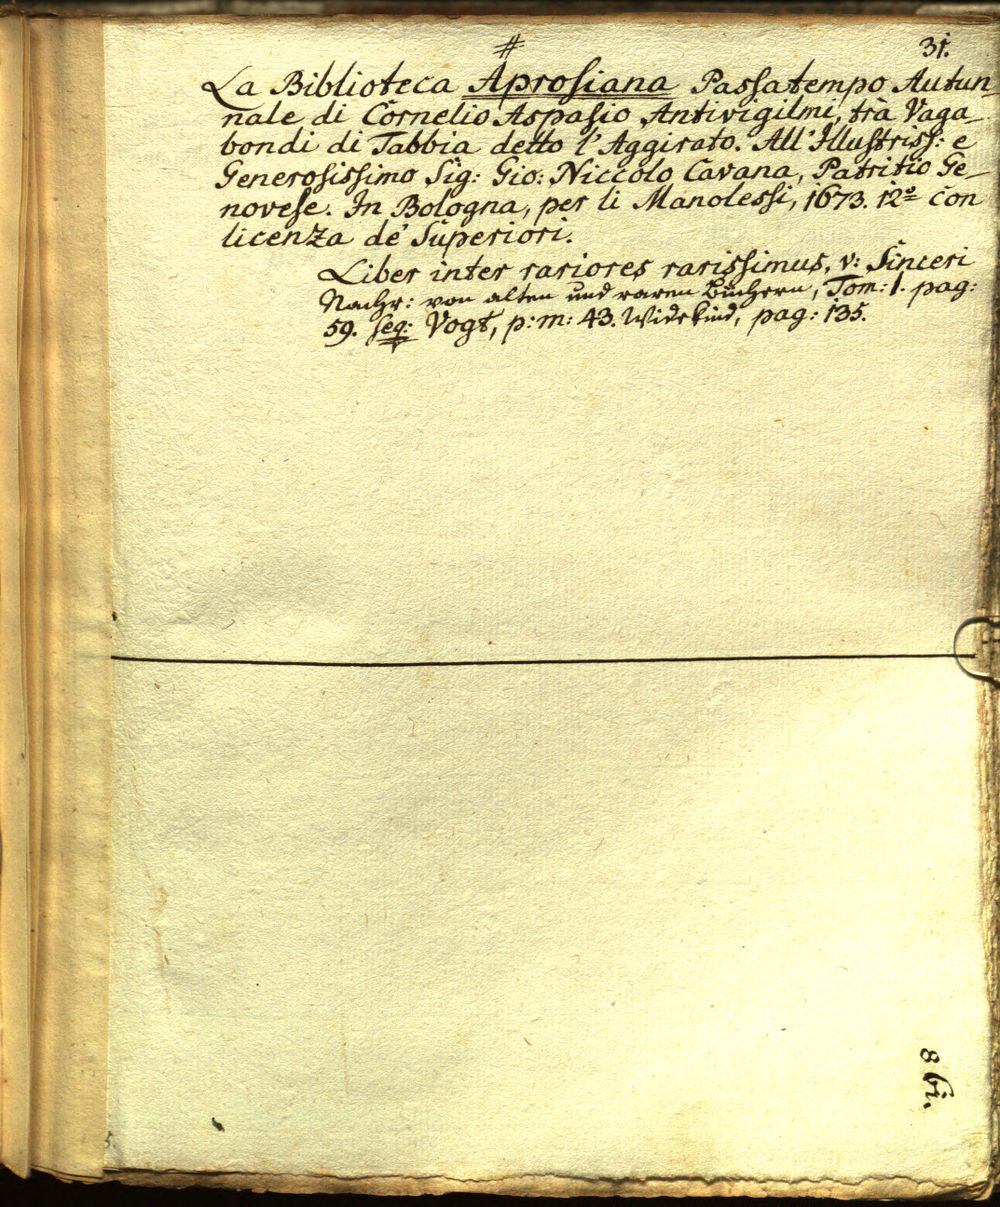 #
31.
La Biblioteca Aprosiana Passatempo Autun-
nale di Cornelio Aspasio Antivigilmi, trà Vaga-
bondi di Tabbia detto l'Aggirato. All'Illustriss: e
Generosissimo Sig: Gio: Niccolo Cavana, Patritio Ge-
novese. In Bologna, per li Manolessi, 1673. 12º con
licenza de' Superiori.
Liber inter rariores rarissimus, v: Sinceri
Nachr: von alten und raren Büchern, Tom: 1. pag:
59. seq: Vogt, p: m: 43. Widekind, pag: 135.
5.